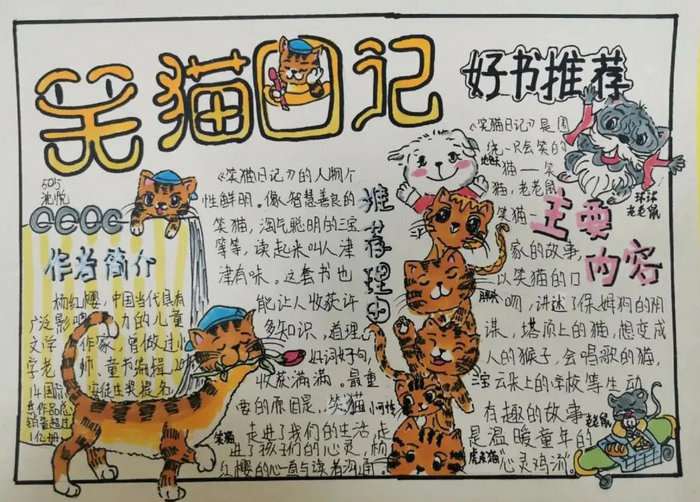 笑猫日记
好书推荐
505
沈悦
作者简介
杨红樱,中国当代具有
广泛影响力的儿童
文学作家,曾做过小
学老师,童书编辑,
《笑猫日记》的人物个
性鲜明。像智慧善良的
笑猫,淘气聪明的三宝
等等,读起来叫人津
津有味。这套书也
能让人收获许
多知识,道理,
好词好句,
收获满满。最重
要的原因是..笑猫
走进了我们的生活,走
进了孩子们的心灵,杨
红樱的心直与读者沟通。
推荐理由
笑猫
地包天
小可怜
虎皮猫
《笑猫日记》是围
绕一只会笑的
猫——笑
猫,老老鼠
笑猫
家的故事
以笑猫的口
吻,讲述了保姆狗的阴
谋,塔顶上的猫,想变成
人的猴子,会唱歌的猫,
云朵上的学校等生动
有趣的故事
是温暖童年的
“心灵鸡汤”。
主要内容
球球
老老鼠
老老鼠